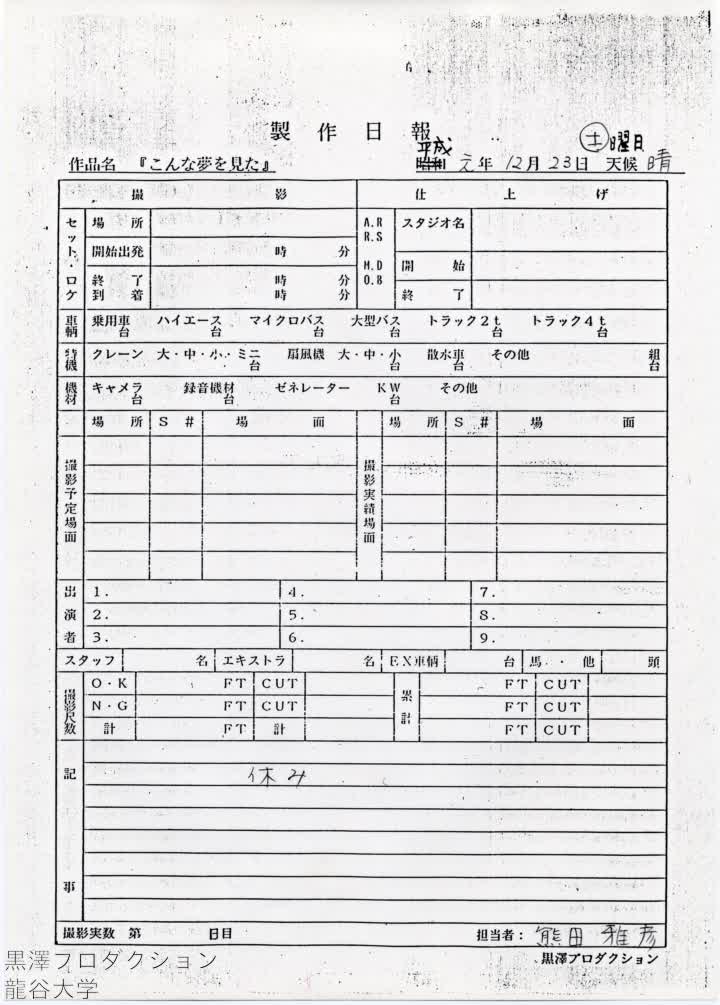 製作日報
平成
㊏曜日
作品名 『こんな夢を見た』 昭和 元年 12月 23日 天候 晴
撮影 仕上げ
セット・ロケ
場所
開始出発 時 分
終了 時 分
到着 時 分
A.R
R.S
M.D
O.B
スタジオ名
開始
終了
車輌 乗用車 台 ハイエース 台 マイクロバス 台 大型バス 台 トラック2t 台 トラック4t 台
特機 クレーン 大・中・小・ミニ 台 扇風機 大・中・小 台 散水車 台 その他 組 台
機材 キャメラ 台 録音機材 台 ゼネレーター KW 台 その他
場所 S# 場面 場所 S# 場面
撮影予定場面
撮影実績場面
出演者
1. 4. 7.
2. 5. 8.
3. 6. 9.
スタッフ 名 エキストラ 名 EX車輌 台 馬・他 頭
撮影尺数
O・K FT CUT 累計 FT CUT
N・G FT CUT FT CUT
計 FT 計 FT CUT
記事
休み
撮影実数 第 日目 担当者: 熊田 雅彦
黒澤プロダクション
黒澤プロダクション
龍谷大学